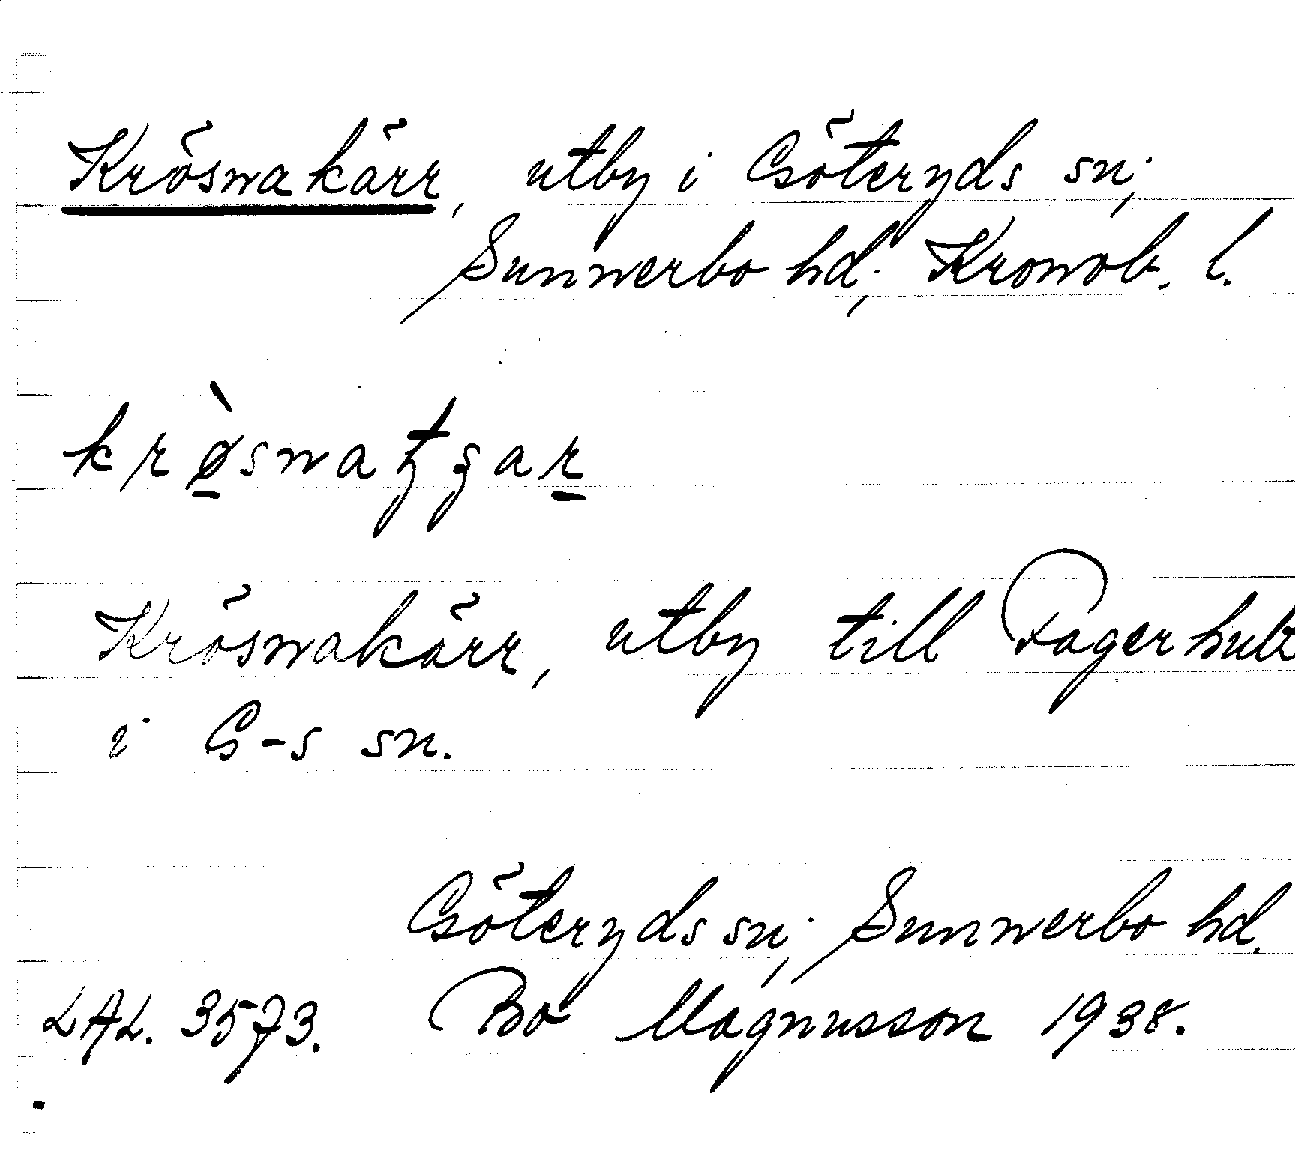 Krösnakärr, utby i Göteryds sn,
Sunnerbo hd, Kronob. l.
Krösnakärr, utby till Fagerhult
i G-s sn.
Göteryds sn, Sunnerbo hd.
LAL. 3573. Bo Magnusson 1938.